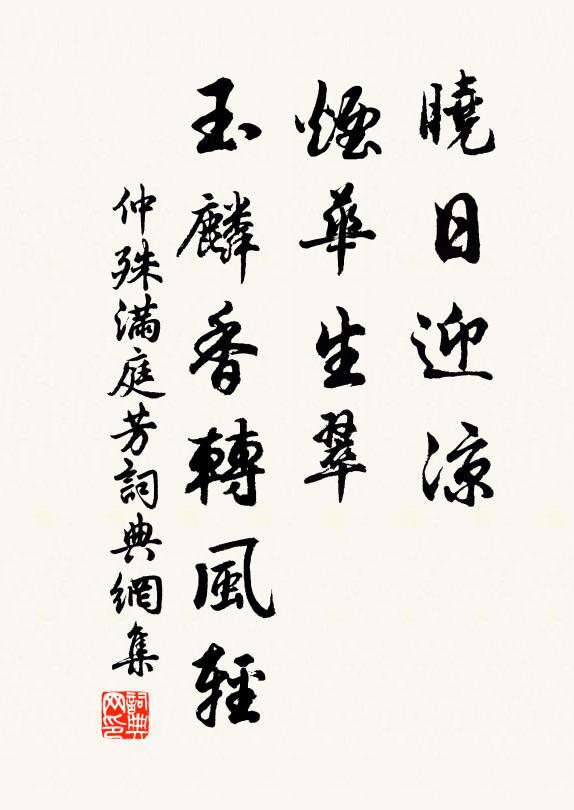 曉日迎涼
煙華生翠
玉麟香轉風輕
仲殊滿庭芳詞典網集
詞典
网印